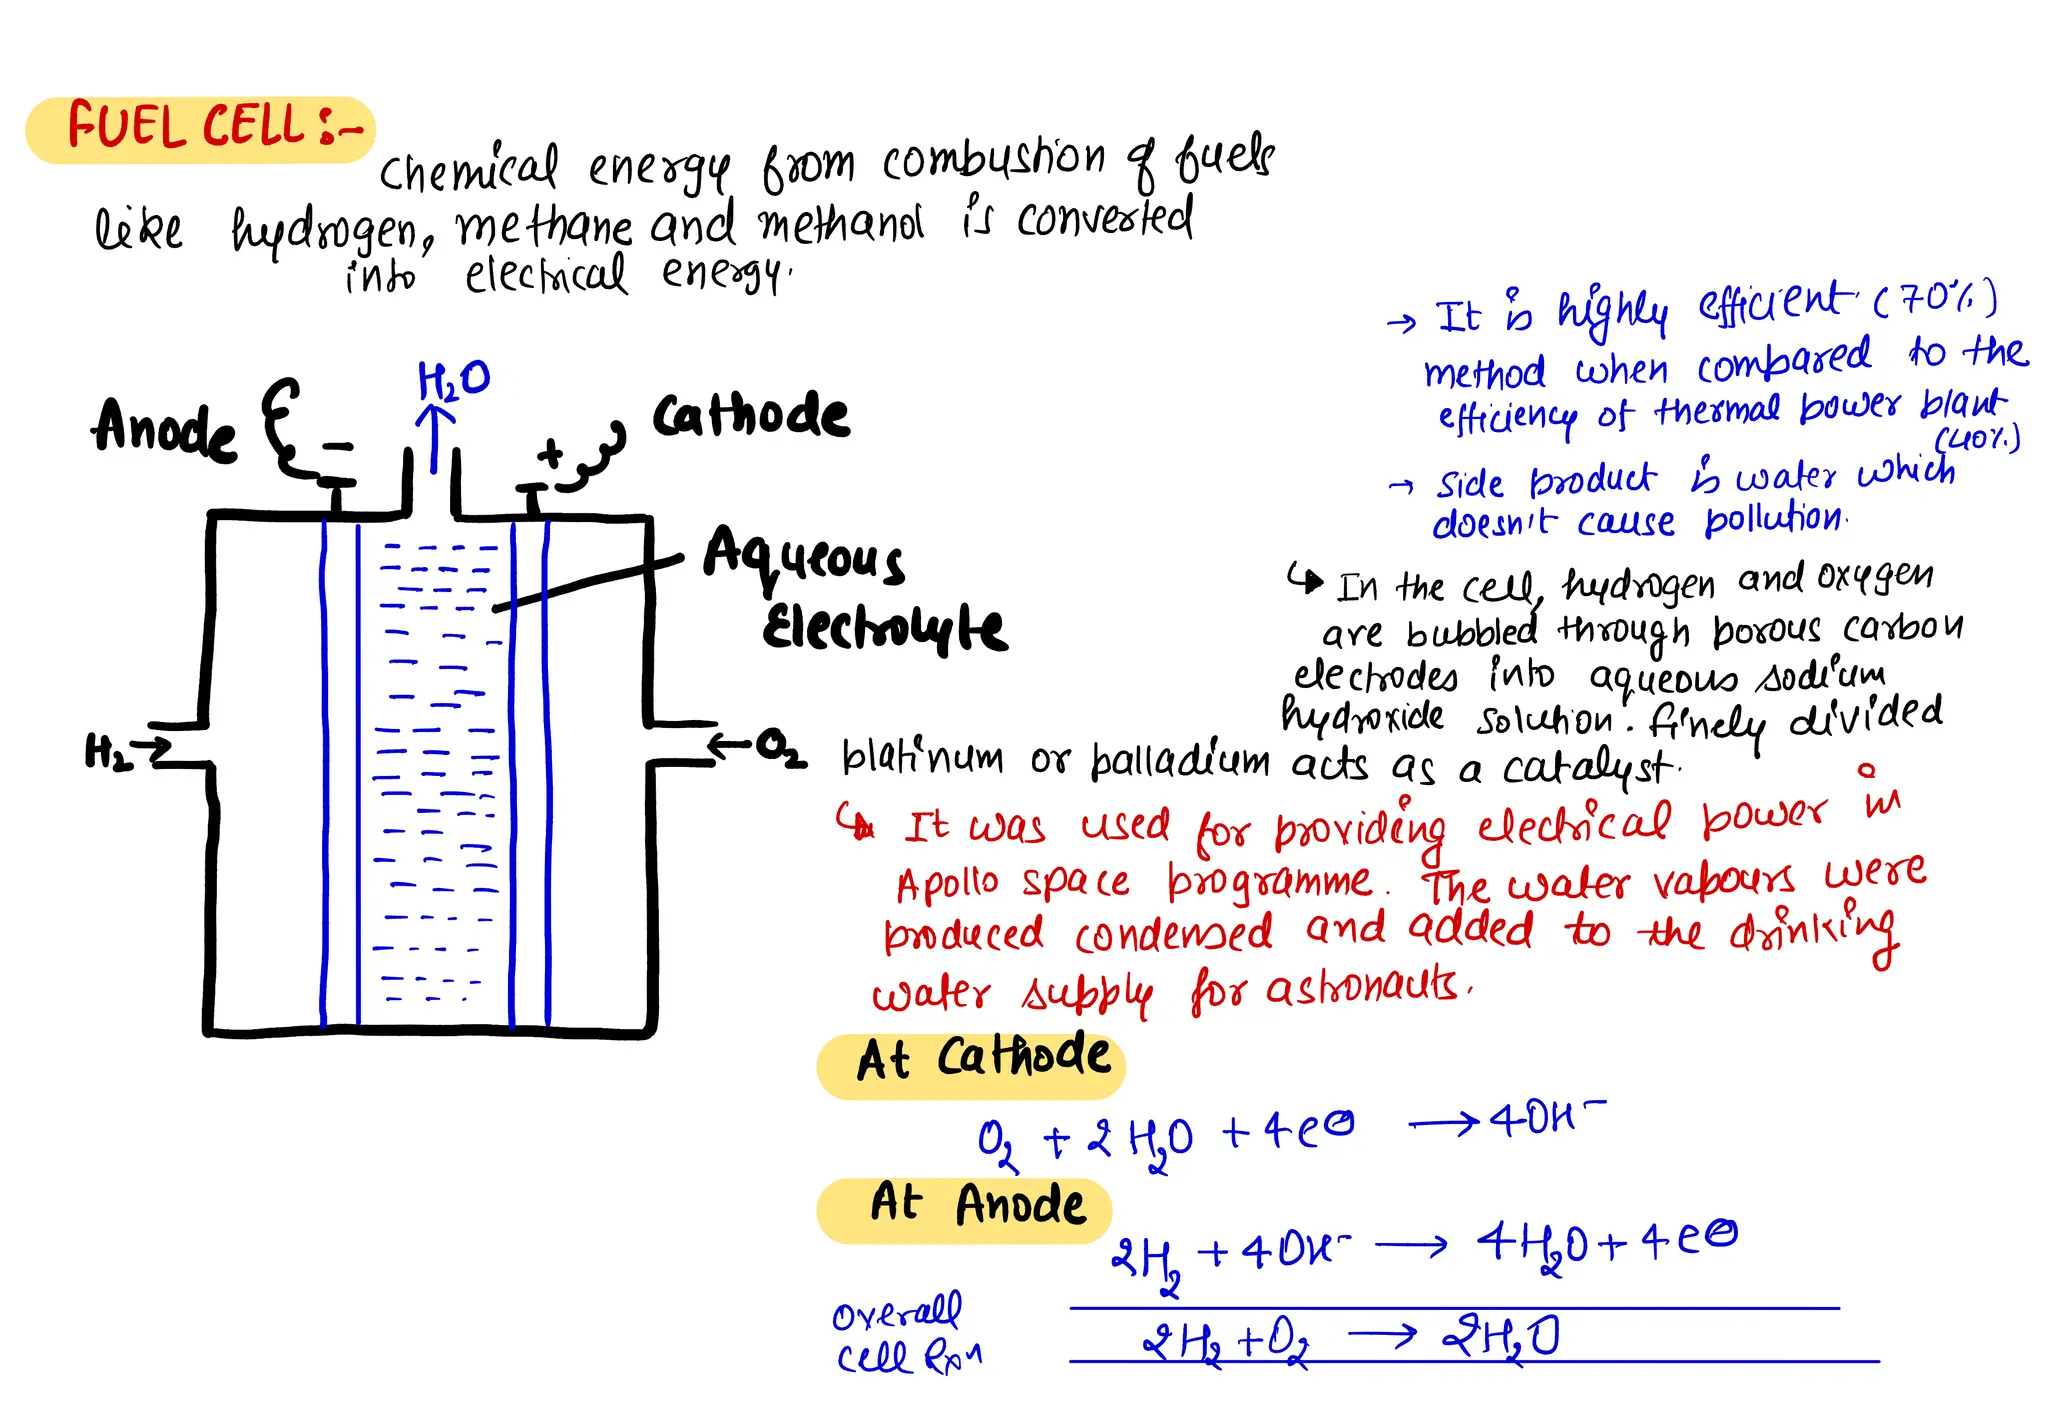 FUEL CELL :-
Chemical energy from combustion of fuels
like hydrogen, methane and methanol is converted
into electrical energy.
→ It is highly efficient (70%)
method when compared to the
efficiency of thermal power plant
(40%)
→ Side product is water which
doesn't cause pollution.
H₂O
Anode
-
+
Cathode
Aqueous
Electrolyte
H₂ →
← O₂
↳ In the cell, hydrogen and oxygen
are bubbled through porous carbon
electrodes into aqueous sodium
hydroxide solution. finely divided
platinum or palladium acts as a catalyst.
↳ It was used for providing electrical power in
Apollo space programme. The water vapours were
produced condensed and added to the drinking
water supply for astronauts.
At Cathode
O₂ + 2H₂O + 4e⊖ → 4OH⁻
At Anode
2H₂ + 4OH⁻ → 4H₂O + 4e⊖
overall
cell Rxn
2H₂ + O₂ → 2H₂O